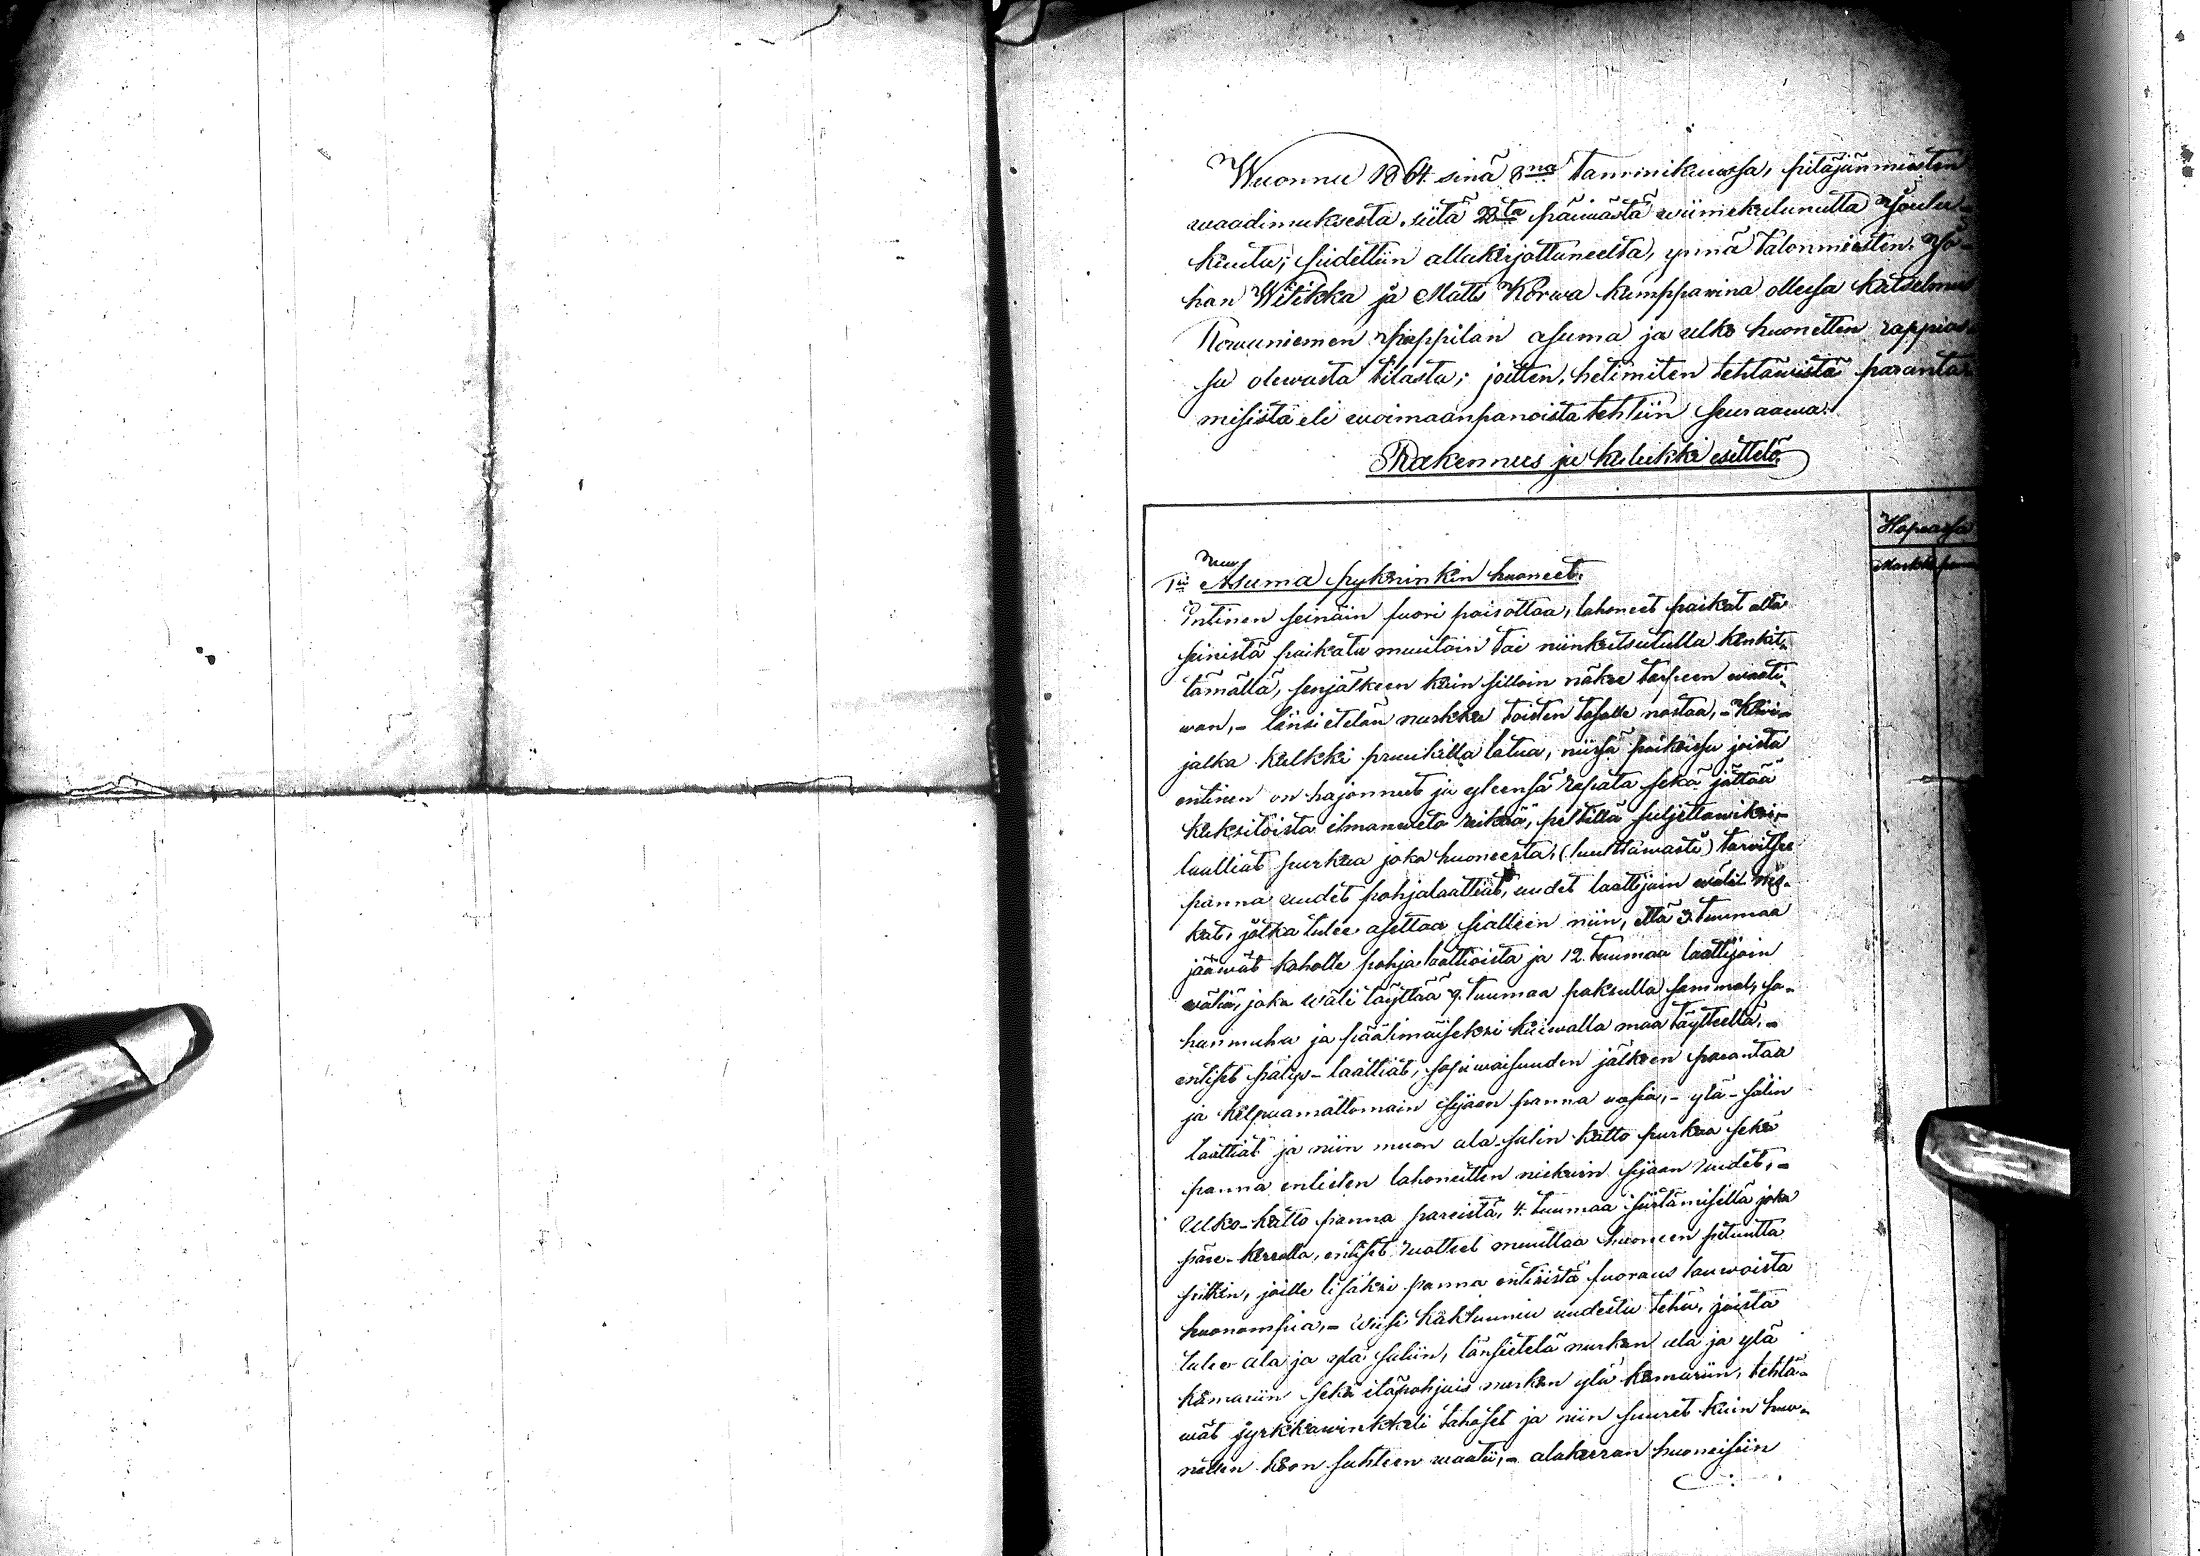 Wuonna 1864 sinä 8na Tammikuussa, pitäjänmiesten
waadimuksesta, siitä 28ta päiwästä wiimekulunutta Joulu-
kuuta; pidettiin allakirjottaneelta, ynnä talonmiesten, Jo-
han Witikka ja Matti Korwa kumppanina ollessa katselmus
Rowaniemen Pappilan asuma ja ulko huonetten rappios-
sa olewasta tilasta; joitten, hetimiten tehtäwistä paranta-
misista eli woimaanpanoista tehtiin seuraawa:
Rakennus ja kulukki esittelö
Hopeassa
Markka penn
No 1
Asuma pykninkin huoneet.
Entinen seinäin fuori poisottaa, lahoneet paikat alta
seinistä paikata muutoin tai niinkutsutulla kenkit-
tämällä, senjälkeen kuin silloin näkee tarpeen waati-
wan,- länsi etelän nurkka toisten tasalle nostaa,- Kiwi-
jalka kalkki pruukilla latua, niissä paikoissa joista
entinen on hajonnut ja yleensä repata sekä jättää
kaksitoista ilmanweto reikää, peltillä suljettawiksi,-
laattiat purkaa joka huoneesta, (luultawasti) tarwitsee
panna uudet pohjalaattiat, uudet laattijain wäli nis-
kat, jotka tulee asettaa sialleen niin, että 3 tuumaa
jääwät koholle pohjalaattioista ja 12 tuumaa laattijain
wäliä, joka wäli täyttää 9 tuumaa paksulla sammal, sa-
hanmuha ja päälimäiseksi kuiwalla maa täytteellä,-
entiset pälys-laattiat, sopiwaisuuden jälkeen parantaa
ja kelpaamattomain sijaan panna uusia,- ylä-salin
laattiat ja niin muon ala salin katto purkaa sekä
panna entisten lahoneitten niskain sijaan uudet,-
Ulko-katto panna pareista, 4 tuumaa siirtämisellä joka
päre-kerralla, entiset ruotteet muuttaa huoneen pituutta
pitkin, joille lisäksi panna entisistä fuoraus lauwoista
huonompia,- Wiisi kakluunia uudesta tehä, joista
tulee ala ja ylä saliin, länsietelä nurkan ala ja ylä
kamariin sekä itäpohjais nurkan ylä kamariin, tehtä-
wät jyrkkäwinkkeli tahoset ja niin suuret kuin huo-
netten koon suhteen waatii,- alakerran huoneisiin